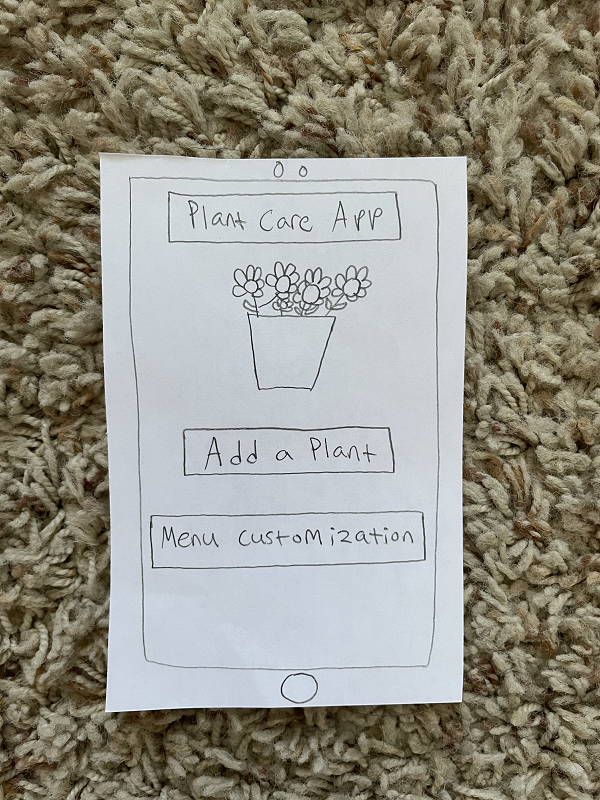 Plant Care App
Add a Plant
Menu customization